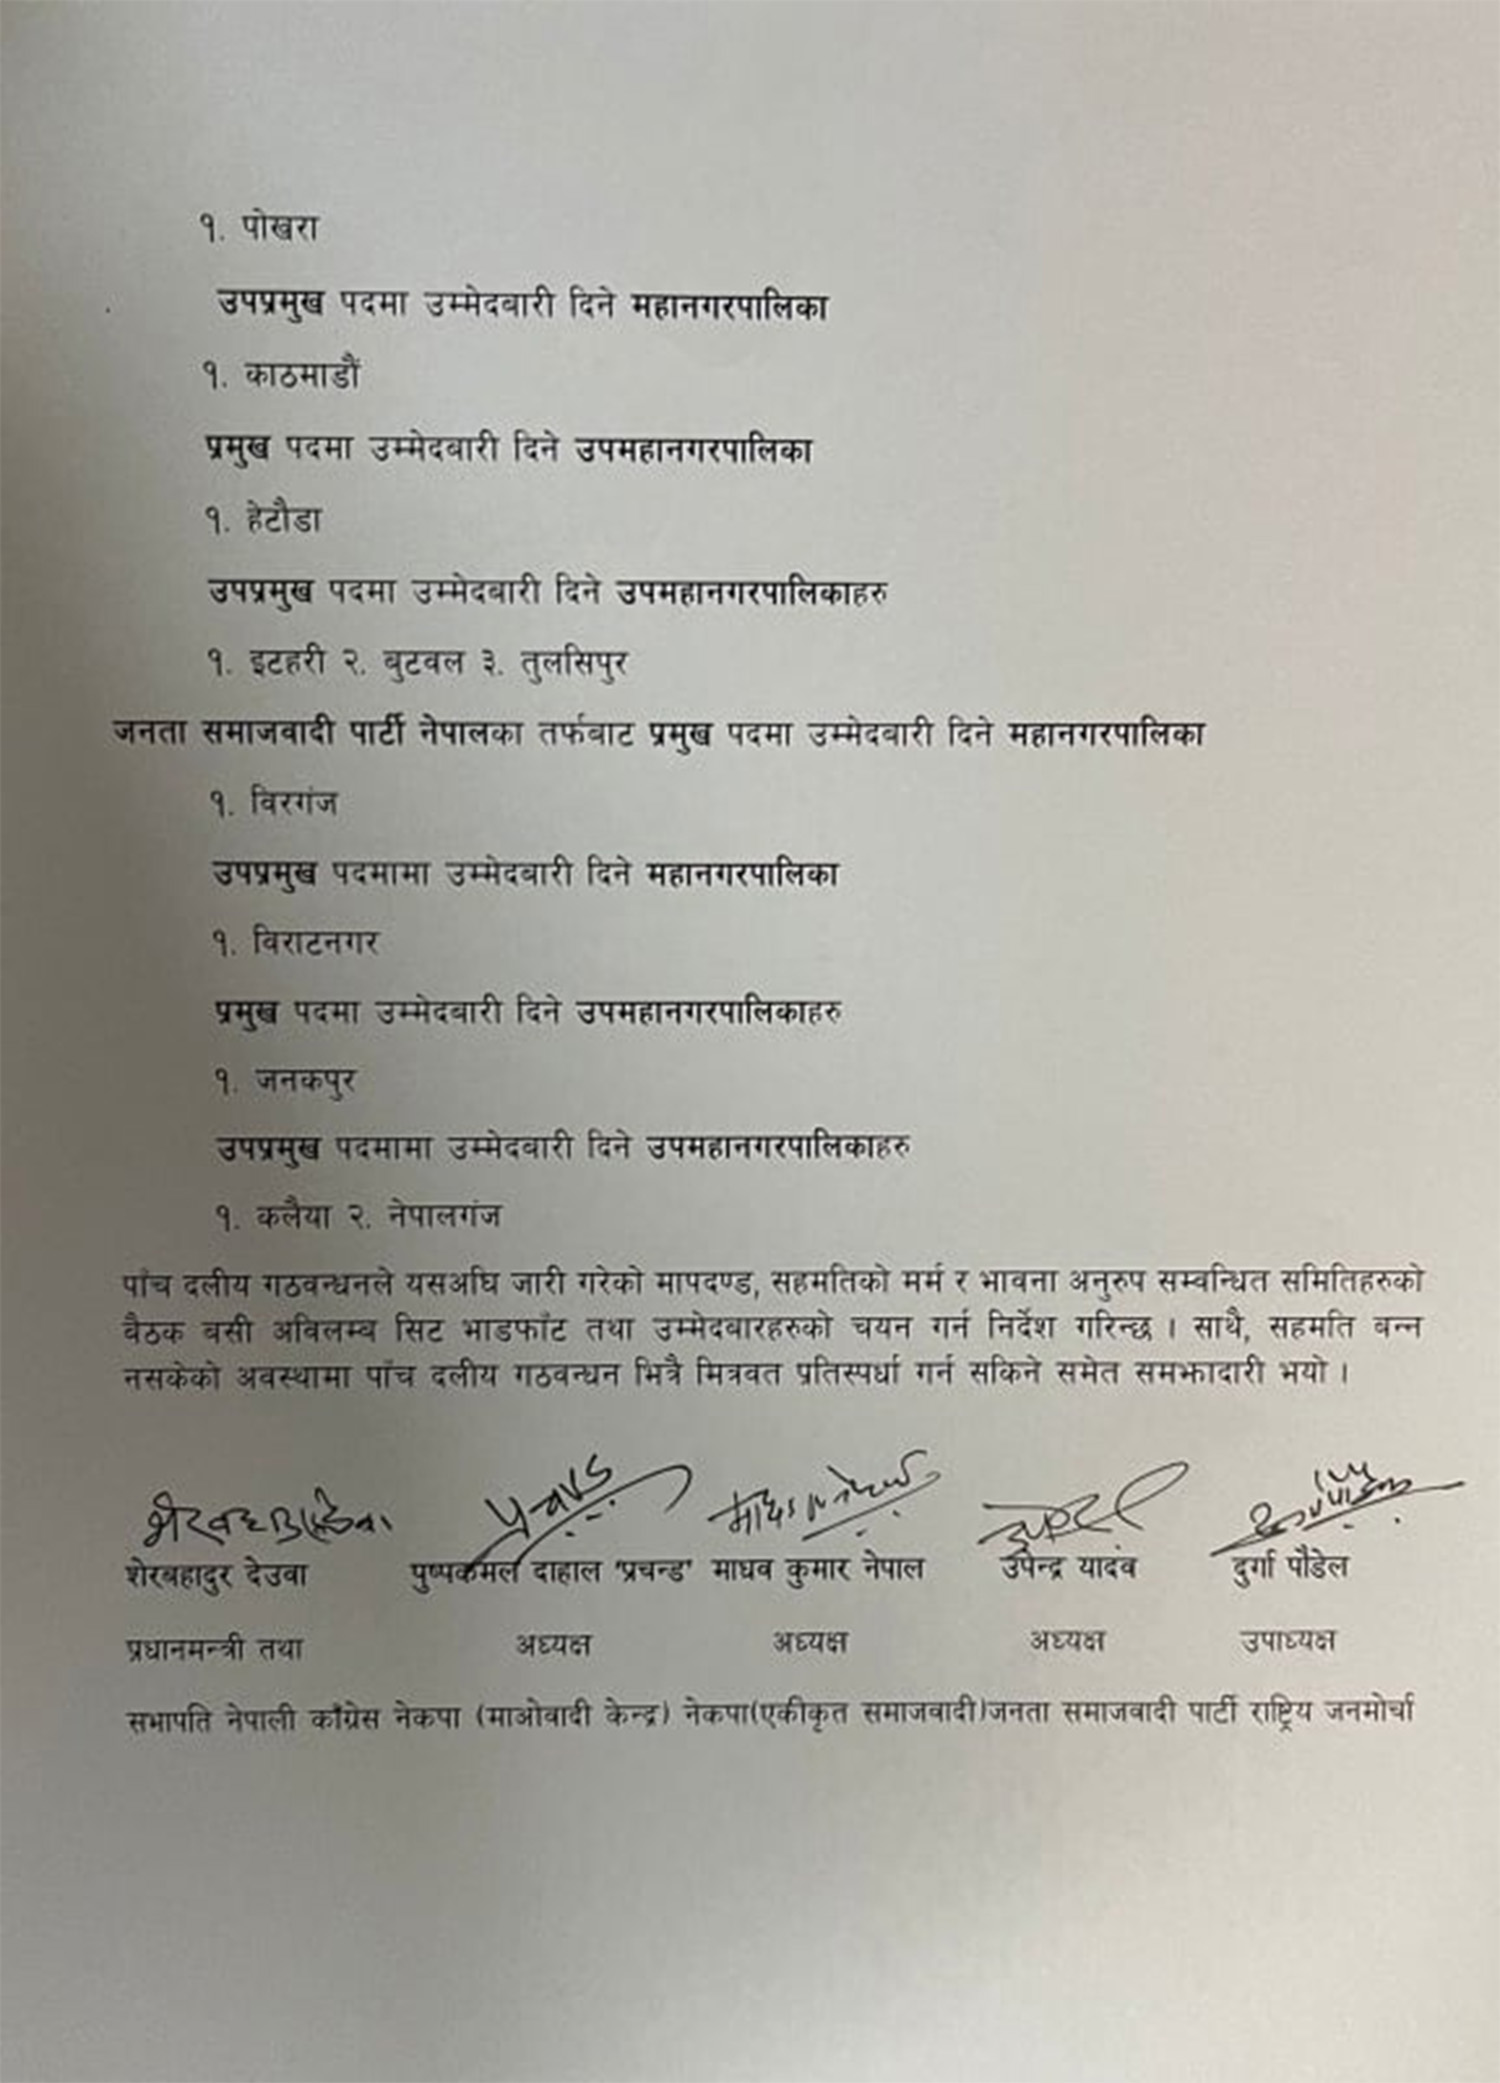 १. पोखरा
उपप्रमुख पदमा उम्मेदबारी दिने महानगरपालिका
१. काठमाडौं
प्रमुख पदमा उम्मेदबारी दिने उपमहानगरपालिका
१. हेटौडा
उपप्रमुख पदमा उम्मेदबारी दिने उपमहानगरपालिकाहरु
१. इटहरी २. बुटवल ३. तुलसिपुर
जनता समाजवादी पार्टी नेपालका तर्फबाट प्रमुख पदमा उम्मेदबारी दिने महानगरपालिका
१. विरगंज
उपप्रमुख पदमामा उम्मेदबारी दिने महानगरपालिका
१. विराटनगर
प्रमुख पदमा उम्मेदबारी दिने उपमहानगरपालिकाहरु
१. जनकपुर
उपप्रमुख पदमामा उम्मेदबारी दिने उपमहानगरपालिकाहरु
१. कलैया २. नेपालगंज
पाँच दलीय गठवन्धनले यसअघि जारी गरेको मापदण्ड, सहमतिको मर्म र भावना अनुरुप सम्वन्धित समितिहरुको
वैठक बसी अविलम्ब सिट भाडफाँट तथा उम्मेदबारहरुको चयन गर्न निर्देश गरिन्छ । साथै, सहमति बन्न
नसकेको अवस्थामा पाँच दलीय गठवन्धन भित्रै मित्रवत प्रतिस्पर्धा गर्न सकिने समेत समझादारी भयो ।
शेरबहादुर देउवा पुष्पकमल दाहाल 'प्रचन्ड' माधव कुमार नेपाल उपेन्द्र यादव दुर्गा पौडेल
प्रधानमन्त्री तथा अध्यक्ष अध्यक्ष अध्यक्ष उपाध्यक्ष
सभापति नेपाली काँग्रेस नेकपा (माओवादी केन्द्र) नेकपा(एकीकृत समाजवादी)जनता समाजवादी पार्टी राष्ट्रिय जनमोर्चा